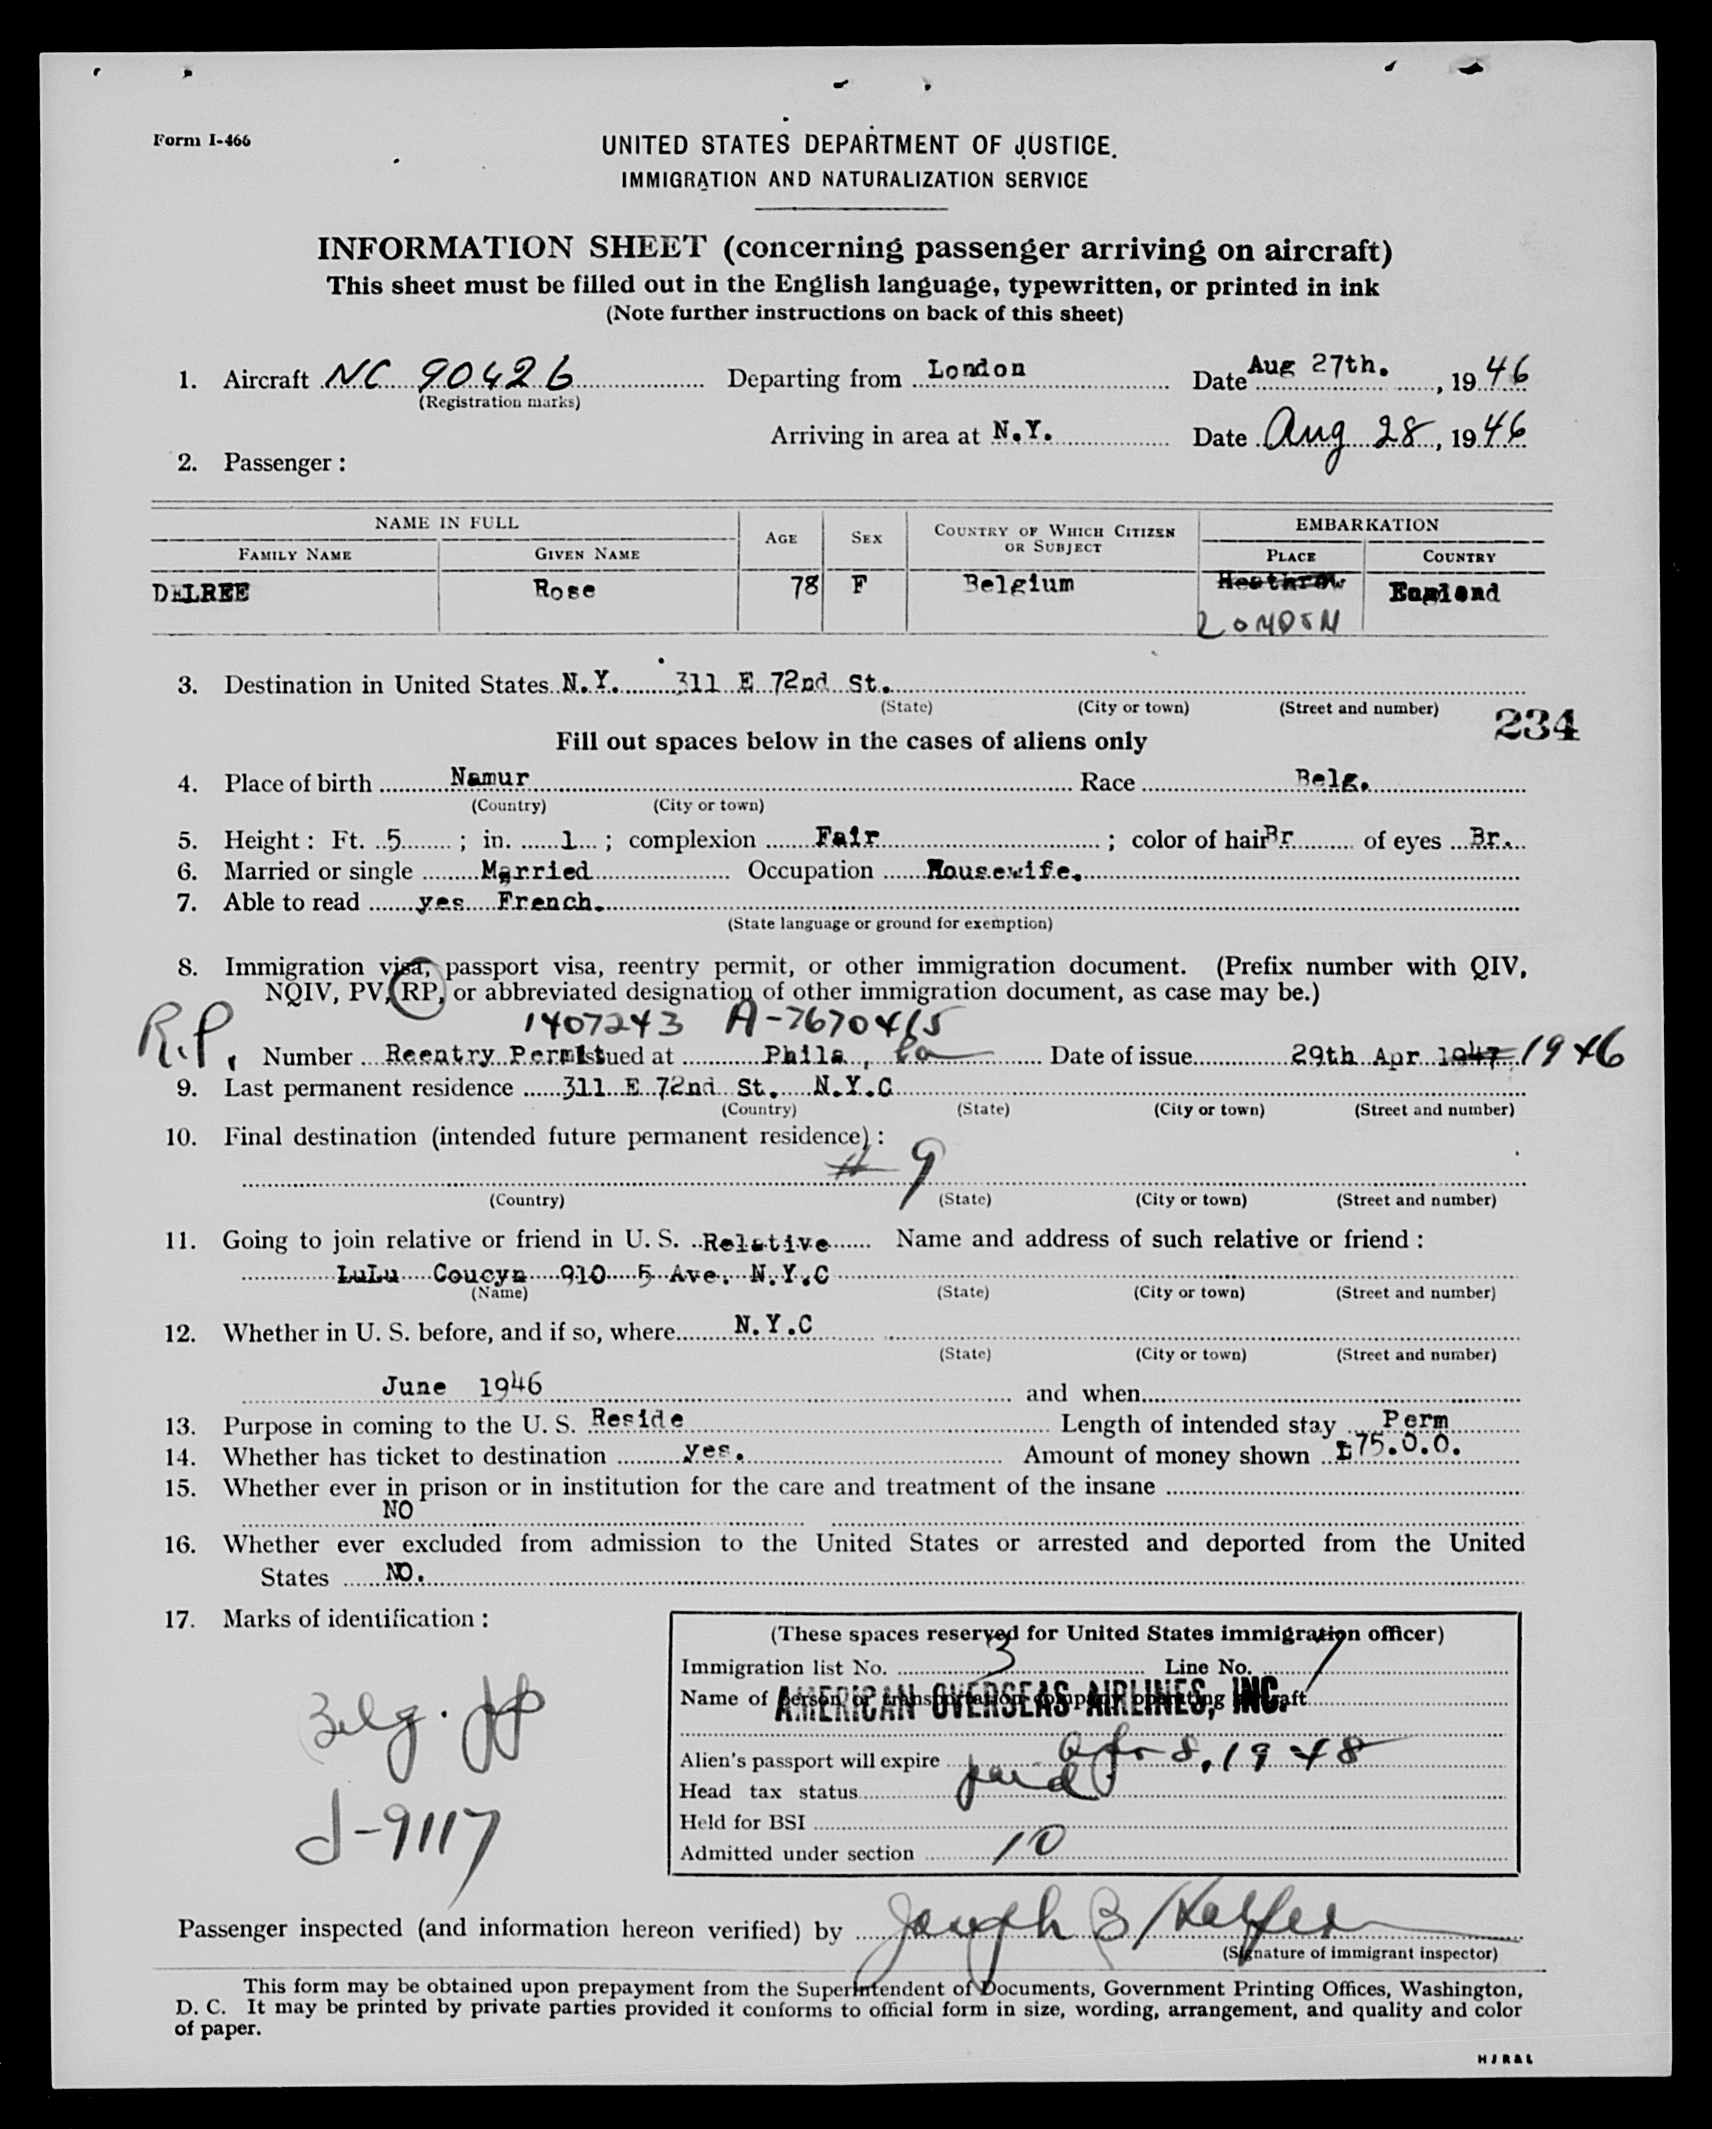 Form I-466
UNITED STATES DEPARTMENT OF JUSTICE.
IMMIGRATION AND NATURALIZATION SERVICE
INFORMATION SHEET (concerning passenger arriving on aircraft)
This sheet must be filled out in the English language, typewritten, or printed in ink
(Note further instructions on back of this sheet)
1. Aircraft NC 90426 Departing from London Date Aug 27th. , 19 46
(Registration marks)
Arriving in area at N.Y. Date Aug 28 , 19 46
2. Passenger :
NAME IN FULL AGE SEX COUNTRY OF WHICH CITIZEN OR SUBJECT EMBARKATION
FAMILY NAME GIVEN NAME PLACE COUNTRY
DELREE Rose 78 F Belgium Heathrow England
LONDON
3. Destination in United States N.Y. 311 E 72nd St.
(State) (City or town) (Street and number)
234
Fill out spaces below in the cases of aliens only
4. Place of birth Namur Race Belg.
(Country) (City or town)
5. Height : Ft. 5 ; in. 1 ; complexion Fair ; color of hair Br of eyes Br.
6. Married or single Married Occupation Housewife.
7. Able to read yes French.
(State language or ground for exemption)
8. Immigration visa, passport visa, reentry permit, or other immigration document. (Prefix number with QIV,
NQIV, PV, RP, or abbreviated designation of other immigration document, as case may be.)
R.P. 1407243 A-7670415
Number Reentry Permit Issued at Phila, Pa Date of issue 29th Apr 1947 1946
9. Last permanent residence 311 E 72nd St. N.Y.C
(Country) (State) (City or town) (Street and number)
10. Final destination (intended future permanent residence) :
# 9
(Country) (State) (City or town) (Street and number)
11. Going to join relative or friend in U. S. Relative Name and address of such relative or friend :
LuLu Coucyn 910 5 Ave. N.Y.C
(Name) (State) (City or town) (Street and number)
12. Whether in U. S. before, and if so, where N.Y.C
(State) (City or town) (Street and number)
June 1946 and when
13. Purpose in coming to the U. S. Reside Length of intended stay Perm
14. Whether has ticket to destination yes. Amount of money shown £75.0.0.
15. Whether ever in prison or in institution for the care and treatment of the insane
NO
16. Whether ever excluded from admission to the United States or arrested and deported from the United
States NO.
17. Marks of identification :
(These spaces reserved for United States immigration officer)
Immigration list No. 3 Line No. 1
Name of person or transportation company operating aircraft
AMERICAN OVERSEAS AIRLINES, INC.
Belg.
Alien's passport will expire Apr 8, 1948
Head tax status paid
Held for BSI
J-9117
Admitted under section 10
Passenger inspected (and information hereon verified) by Joseph B
(Signature of immigrant inspector)
This form may be obtained upon prepayment from the Superintendent of Documents, Government Printing Offices, Washington,
D. C. It may be printed by private parties provided it conforms to official form in size, wording, arrangement, and quality and color
of paper.
HJR&L